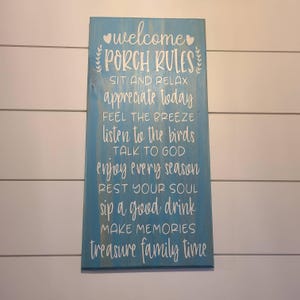 welcome
PORCH RULES
SIT AND RELAX
appreciate today
FEEL THE BREEZE
listen to the birds
TALK TO GOD
enjoy every season
REST YOUR SOUL
sip a good drink
MAKE MEMORIES
treasure family time